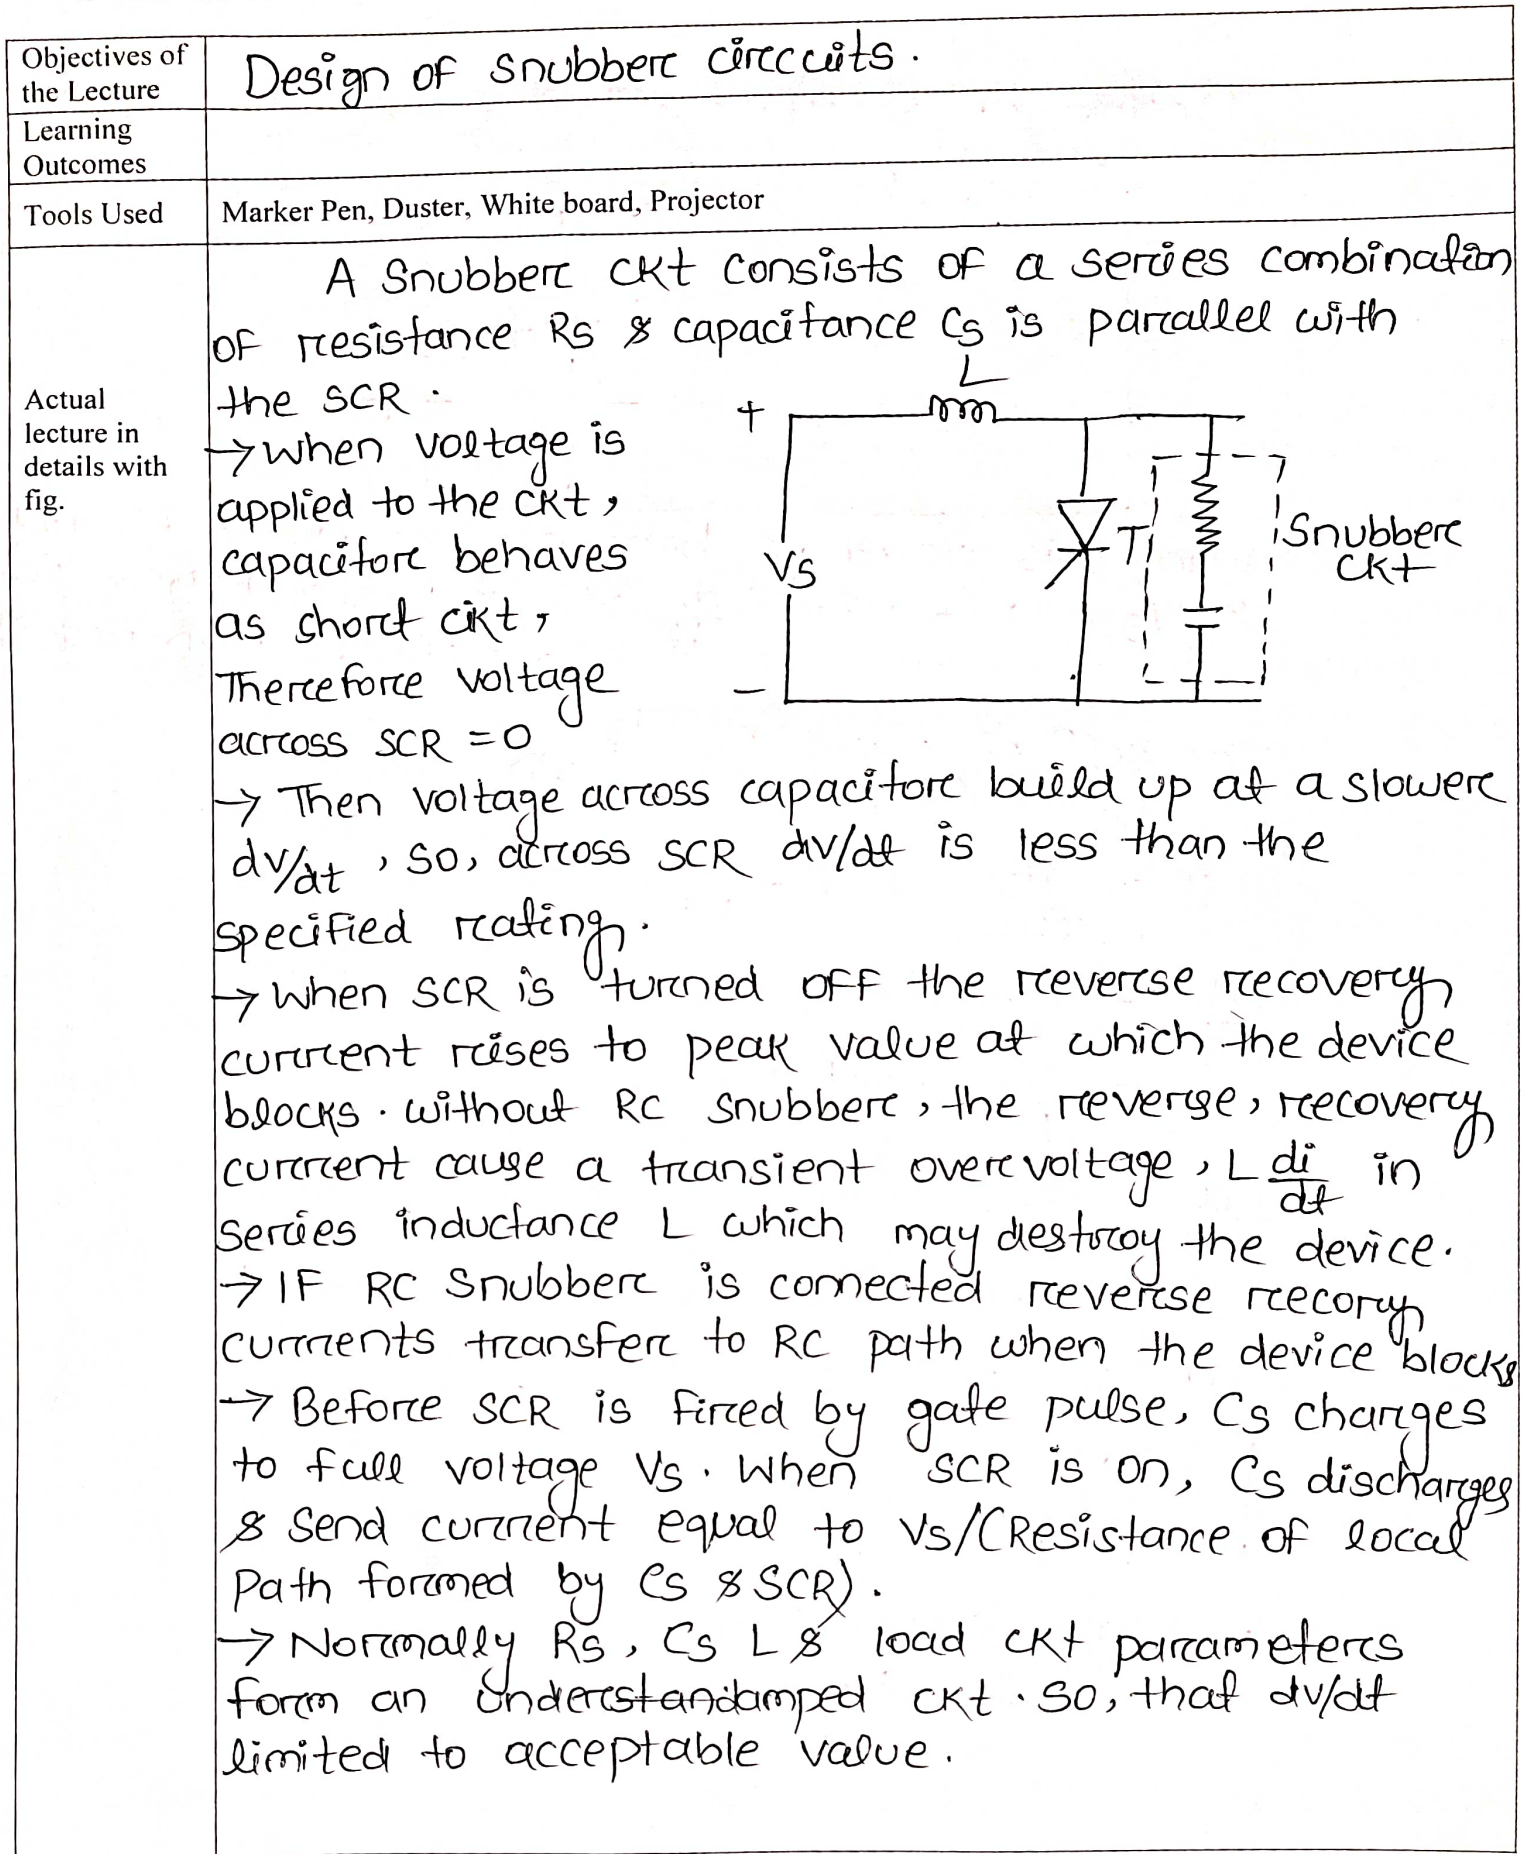 Objectives of
the Lecture
Design of Snubber circuits.
Learning
Outcomes
Tools Used
Marker Pen, Duster, White board, Projector
Actual
lecture in
details with
fig.
A Snubber ckt consists of a series combination
of resistance Rs & capacitance Cs is parallel with
the SCR.
→ When voltage is
applied to the ckt,
capacitor behaves
as short ckt,
Therefore voltage
across SCR = 0
L
+
Vs
−
T
Snubber
ckt
→ Then voltage across capacitor build up at a slower
dv/dt, so, across SCR dv/dt is less than the
specified rating.
→ When SCR is turned off the reverse recovery
current rises to peak value at which the device
blocks. without RC snubber, the reverse, recovery
current cause a transient over voltage, L di/dt in
series inductance L which may destroy the device.
→ If RC Snubber is connected reverse recory
currents transfer to RC path when the device blocks
→ Before SCR is fired by gate pulse, Cs charges
to full voltage Vs. When SCR is on, Cs discharges
& Send current equal to Vs/(Resistance of local
Path formed by Cs & SCR).
→ Normally Rs, Cs L & load ckt parameters
form an underdamped ckt. So, that dv/dt
limited to acceptable value.